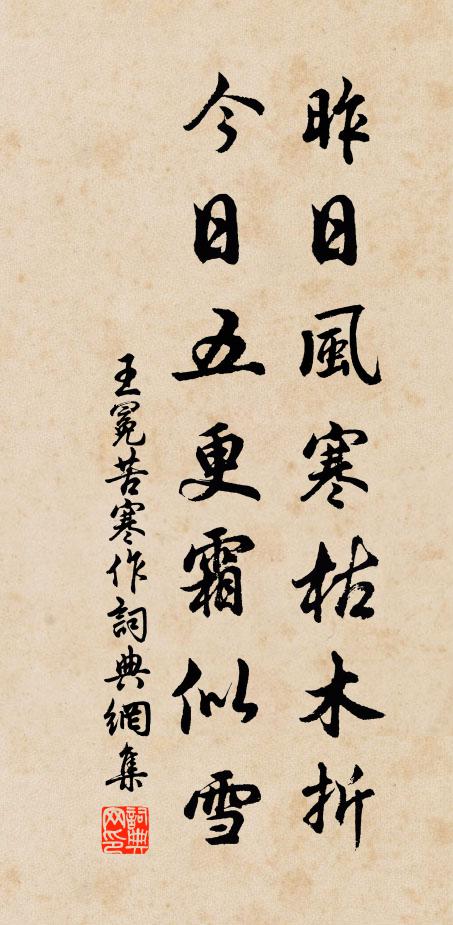 昨日風寒枯木折
今日五更霜似雪
王冕苦寒作詞典網集
詞典網印